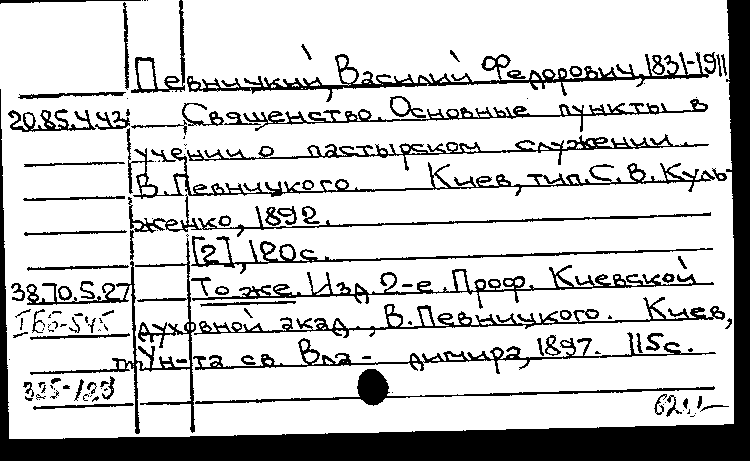 Певницкий, Василий Федорович, 1831-1911
20.85.4.43 Священство. Основные пункты в
учении о пастырском служении.
В. Певницкого. Киев, тип. С. В. Куль-
женко, 1892.
[2], 120 с.
38.70.5.27 То же. Изд. 2-е. Проф. Киевской
І66-545 духовной акад., В. Певницкого. Киев,
Ун-та св. Вла- димира, 1897. 115 с.
325-/23